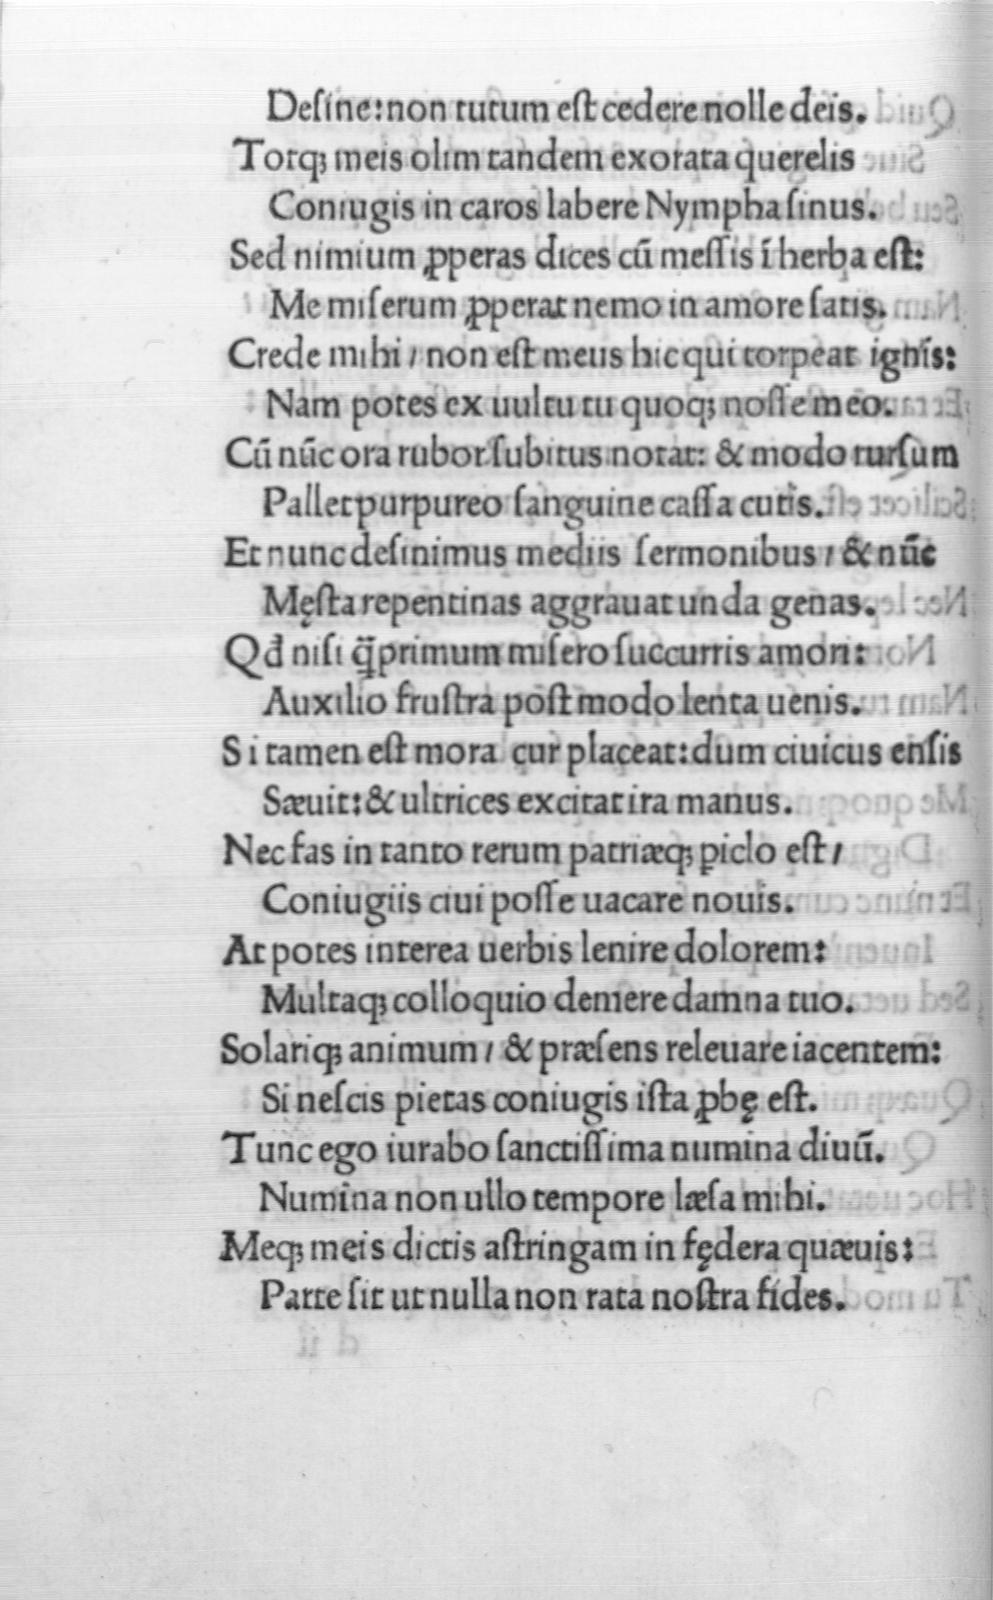 Deſine: non tutum eſt cedere nolle deis.
Totqꝫ meis olim tandem exorata querelis
Coniugis in caros labere Nympha ſinus.
Sed nimium ꝓperas dices cū meſſis ī herba eſt:
Me miſerum ꝓperat nemo in amore ſatis.
Crede mihi / non eſt meus hic qui torpeat ignis:
Nam potes ex uultu tu quoqꝫ noſſe meo.
Cū nūc ora rubor ſubitus notat: & modo rurſum
Pallet purpureo ſanguine caſſa cutis.
Et nunc deſinimus mediis ſermonibus / & nūc
Męſta repentinas aggrauat unda genas.
Qđ niſi q̄̈primum miſero ſuccurris amori:
Auxilio fruſtra poſt modo lenta uenis.
Si tamen eſt mora cur placeat: dum ciuicus enſis
Sæuit: & ultrices excitat ira manus.
Nec fas in tanto rerum patriæqꝫ ꝑiclo eſt /
Coniugiis ciui poſſe uacare nouis.
At potes interea uerbis lenire dolorem:
Multaqꝫ colloquio demere damna tuo.
Solariqꝫ animum / & præſens releuare iacentem:
Si neſcis pietas coniugis iſta ꝓbę eſt.
Tunc ego iurabo ſanctiſſima numina diuū.
Numina non ullo tempore læſa mihi.
Meqꝫ meis dictis aſtringam in fędera quæuis:
Parte ſit ut nulla non rata noſtra fides.